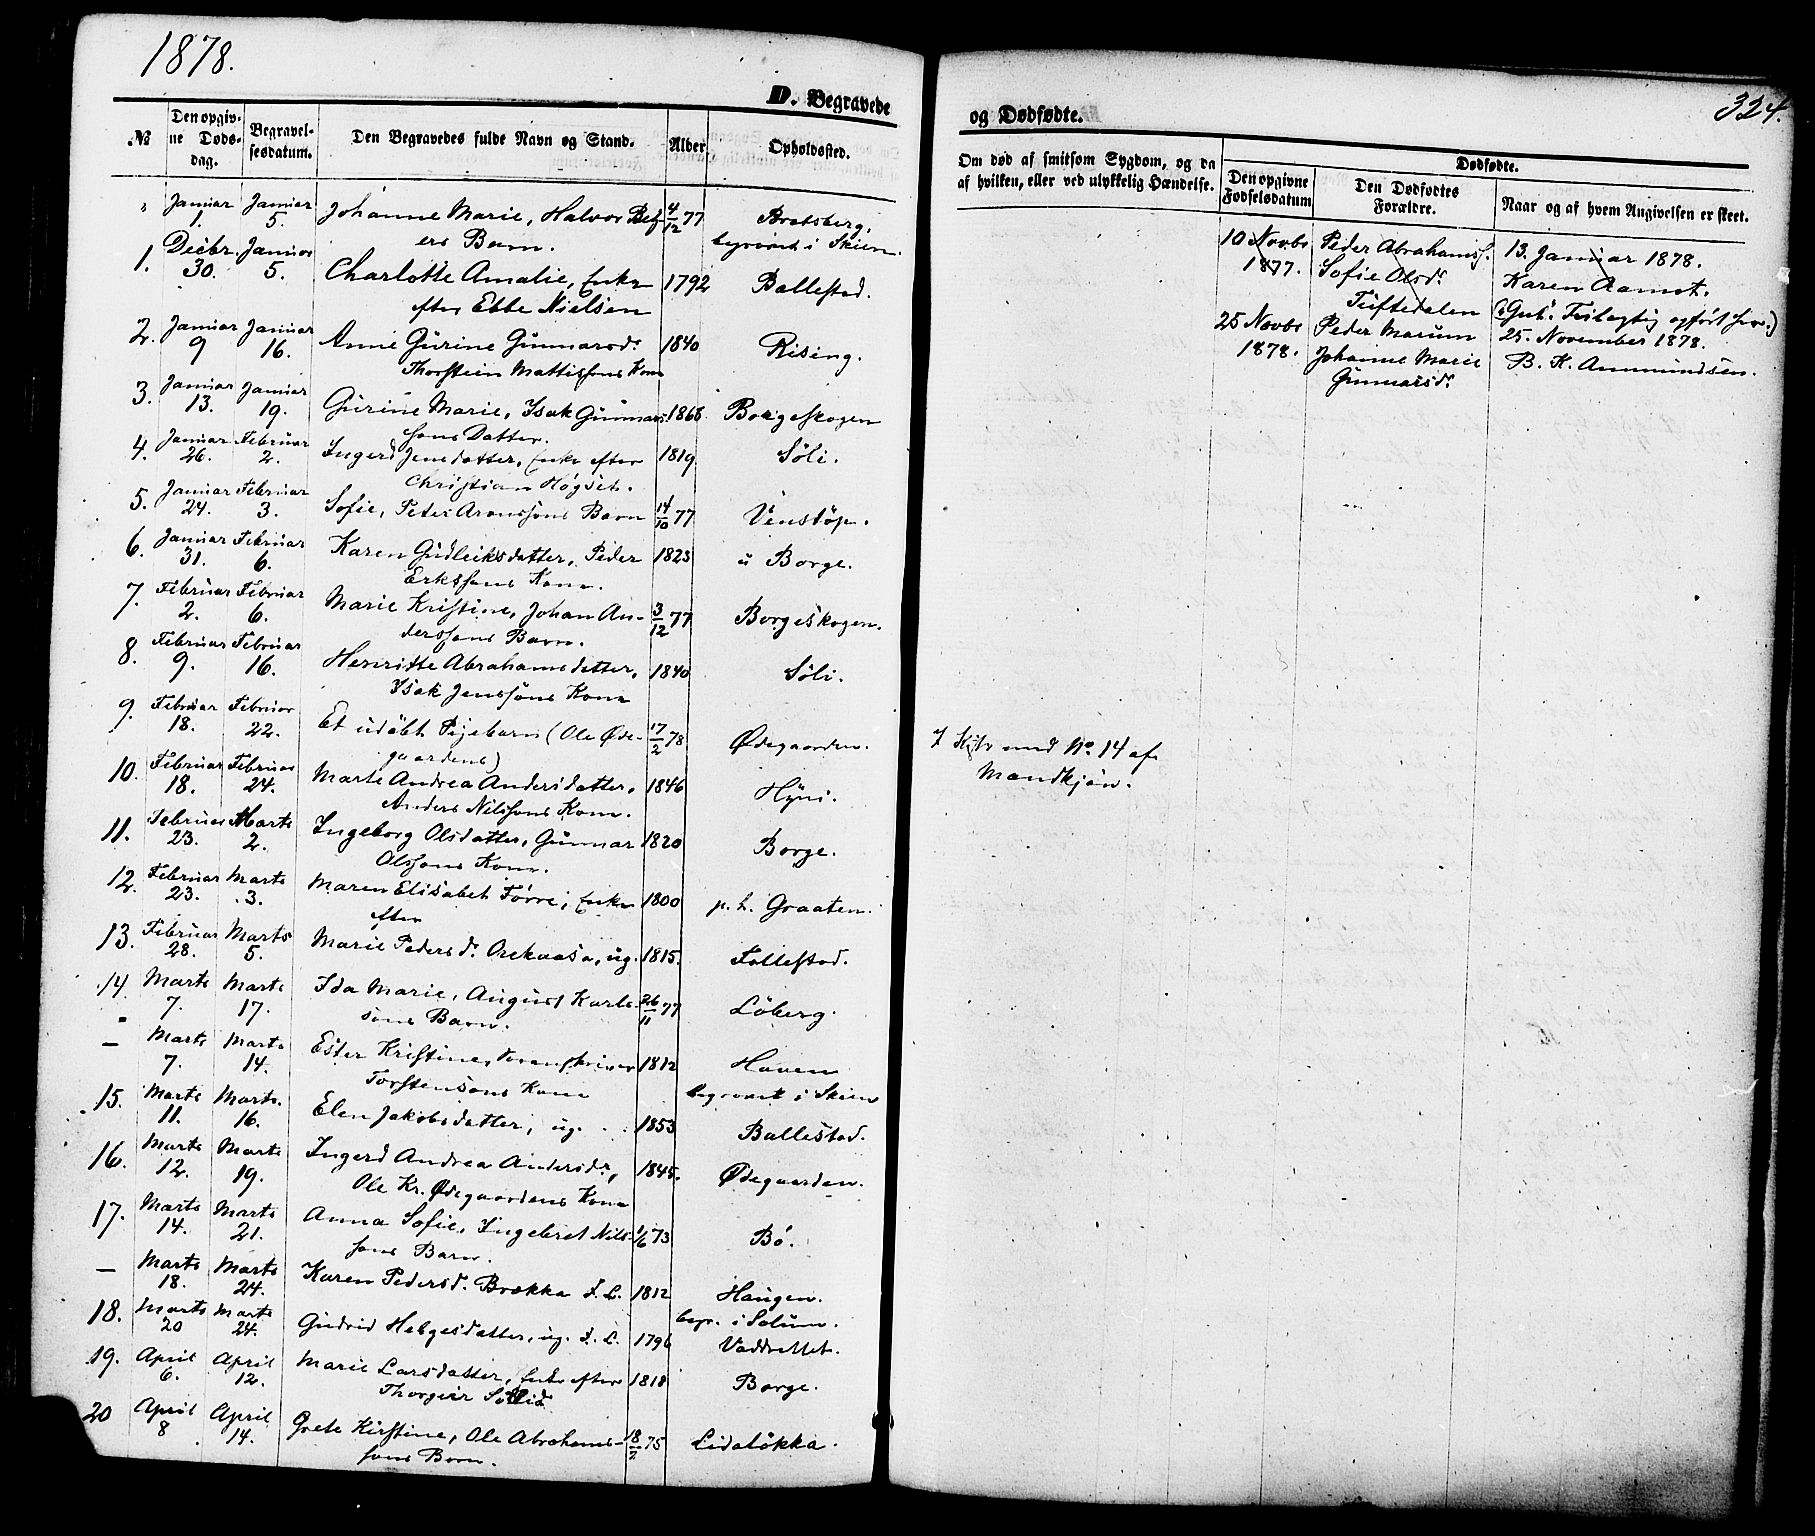 1878.
D. Begravede
№
Den opgiv-
ne Døds-
dag.
Begravel-
sesdatum.
Den Begravedes fulde Navn og Stand.
Alder
Opholdssted.
" Januar 1. Januar 5. Johanne Marie, Halvor 4/12 77 Bratsberg,
ers Barn. begravet i Skien.
1. Decbr. 30. Januar 5. Charlotte Amalie, Enke 1792 Ballestad.
efter Ebbe Nielsen
2. Januar 9 Januar 16. Anne Gurine Gunnarsdr 1840 Rising.
Thorstein Mattissons Kone
3. Januar 13. Januar 19. Gurine Marie, Isak Gunnar- 1866 Borgeskogen
sons Datter.
4. Januar 26. Februar 2. Ingerd Jensdatter, Enke efter 1819 Søli.
Christian Høgset.
5. Januar 24. Februar 3. Sofie, Peder Aronssons Barn 14/10 77 Venstøp.
6. Januar 31. Februar 6. Karen Gudleiksdatter, Peder 1823 u Borge.
Erikssons Kone.
7. Februar 2. Februar 6. Marie Kristine, Johan An- 3/12 77 Borgeskogen.
derssons Barn.
8. Februar 9. Februar 16. Henriette Abrahamsdatter, 1840 Søli.
Isak Jenssons Kone
9. Februar 18. Februar 22. Et udøbt Pigebarn (Ole Øde- 17/2 78 Ødegaarden.
gaardens)
10. Februar 18. Februar 24. Marte Andrea Andersdatter, 1846 Hyni.
Anders Nilssons Kone.
11. Februar 23. Marts 2. Ingeborg Olsdatter, Gunnar 1820 Borge.
Olssons Kone.
12. Februar 23. Marts 3. Maren Elisabet Førre, Enke 1800 p. h. Graaten.
efter
13. Februar 28. Marts 5. Marie Pedersdr. Orekaasa, ug. 1815. Follestad.
14 Marts 7. Marts 17. Ida Marie, August Karls- 26/11 77 Løberg.
sons Barn.
— Marts 7. Marts 14. Ester Kristine, 1812 Haven
Torstensons Kone begravet i Skien
15. Marts 11. Marts. 16. Elen Jakobsdatter, ug. 1853 Ballestad.
16. Marts 12. Marts 19. Ingerd Andrea Andersdr, 1845. Ødegaarden.
Ole Kr. Ødegaardens Kone
17. Marts 14. Marts 21. Anna Sofie, Ingebret Nils- 1/6 73 Bö.
sons Barn.
— Marts 18. Marts 24. Karen Pedersd. Brekka f. L. 1812 Haugen.
begr. i Solum.
18. Marts 20 Marts 24. Gudrid Helgesdatter, ug. f. L. 1796 Vaddrettet.
19. April 6. April 12. Marie Larsdatter, Enke efter 1818 Borge.
Thorgeir Sølid
20 April 8 April 14. Grete Kirstine, Ole Abrahams- 18/2 75 Lidaløkka.
sons Barn.
og Dødfødte.
324.
Om død af smitsom Sygdom, og da
af hvilken, eller ved ulykkelig Hændelse.
Dødfødte.
Den opgivne
Fødselsdatum
Den Dødfødtes
Forældre.
Naar og af hvem Angivelsen er skeet.
10 Novbr Peder Abrahamss. 13. Januar 1878.
1877. Sofie Olsdr Karen Aamot.
Tuftedalen
25 Novbr Peder Marum 25. November 1878.
1878. Johanne Marie B. K. Ammundsen.
Gunnarsdr
med No. 14 af
Mandkjøn.